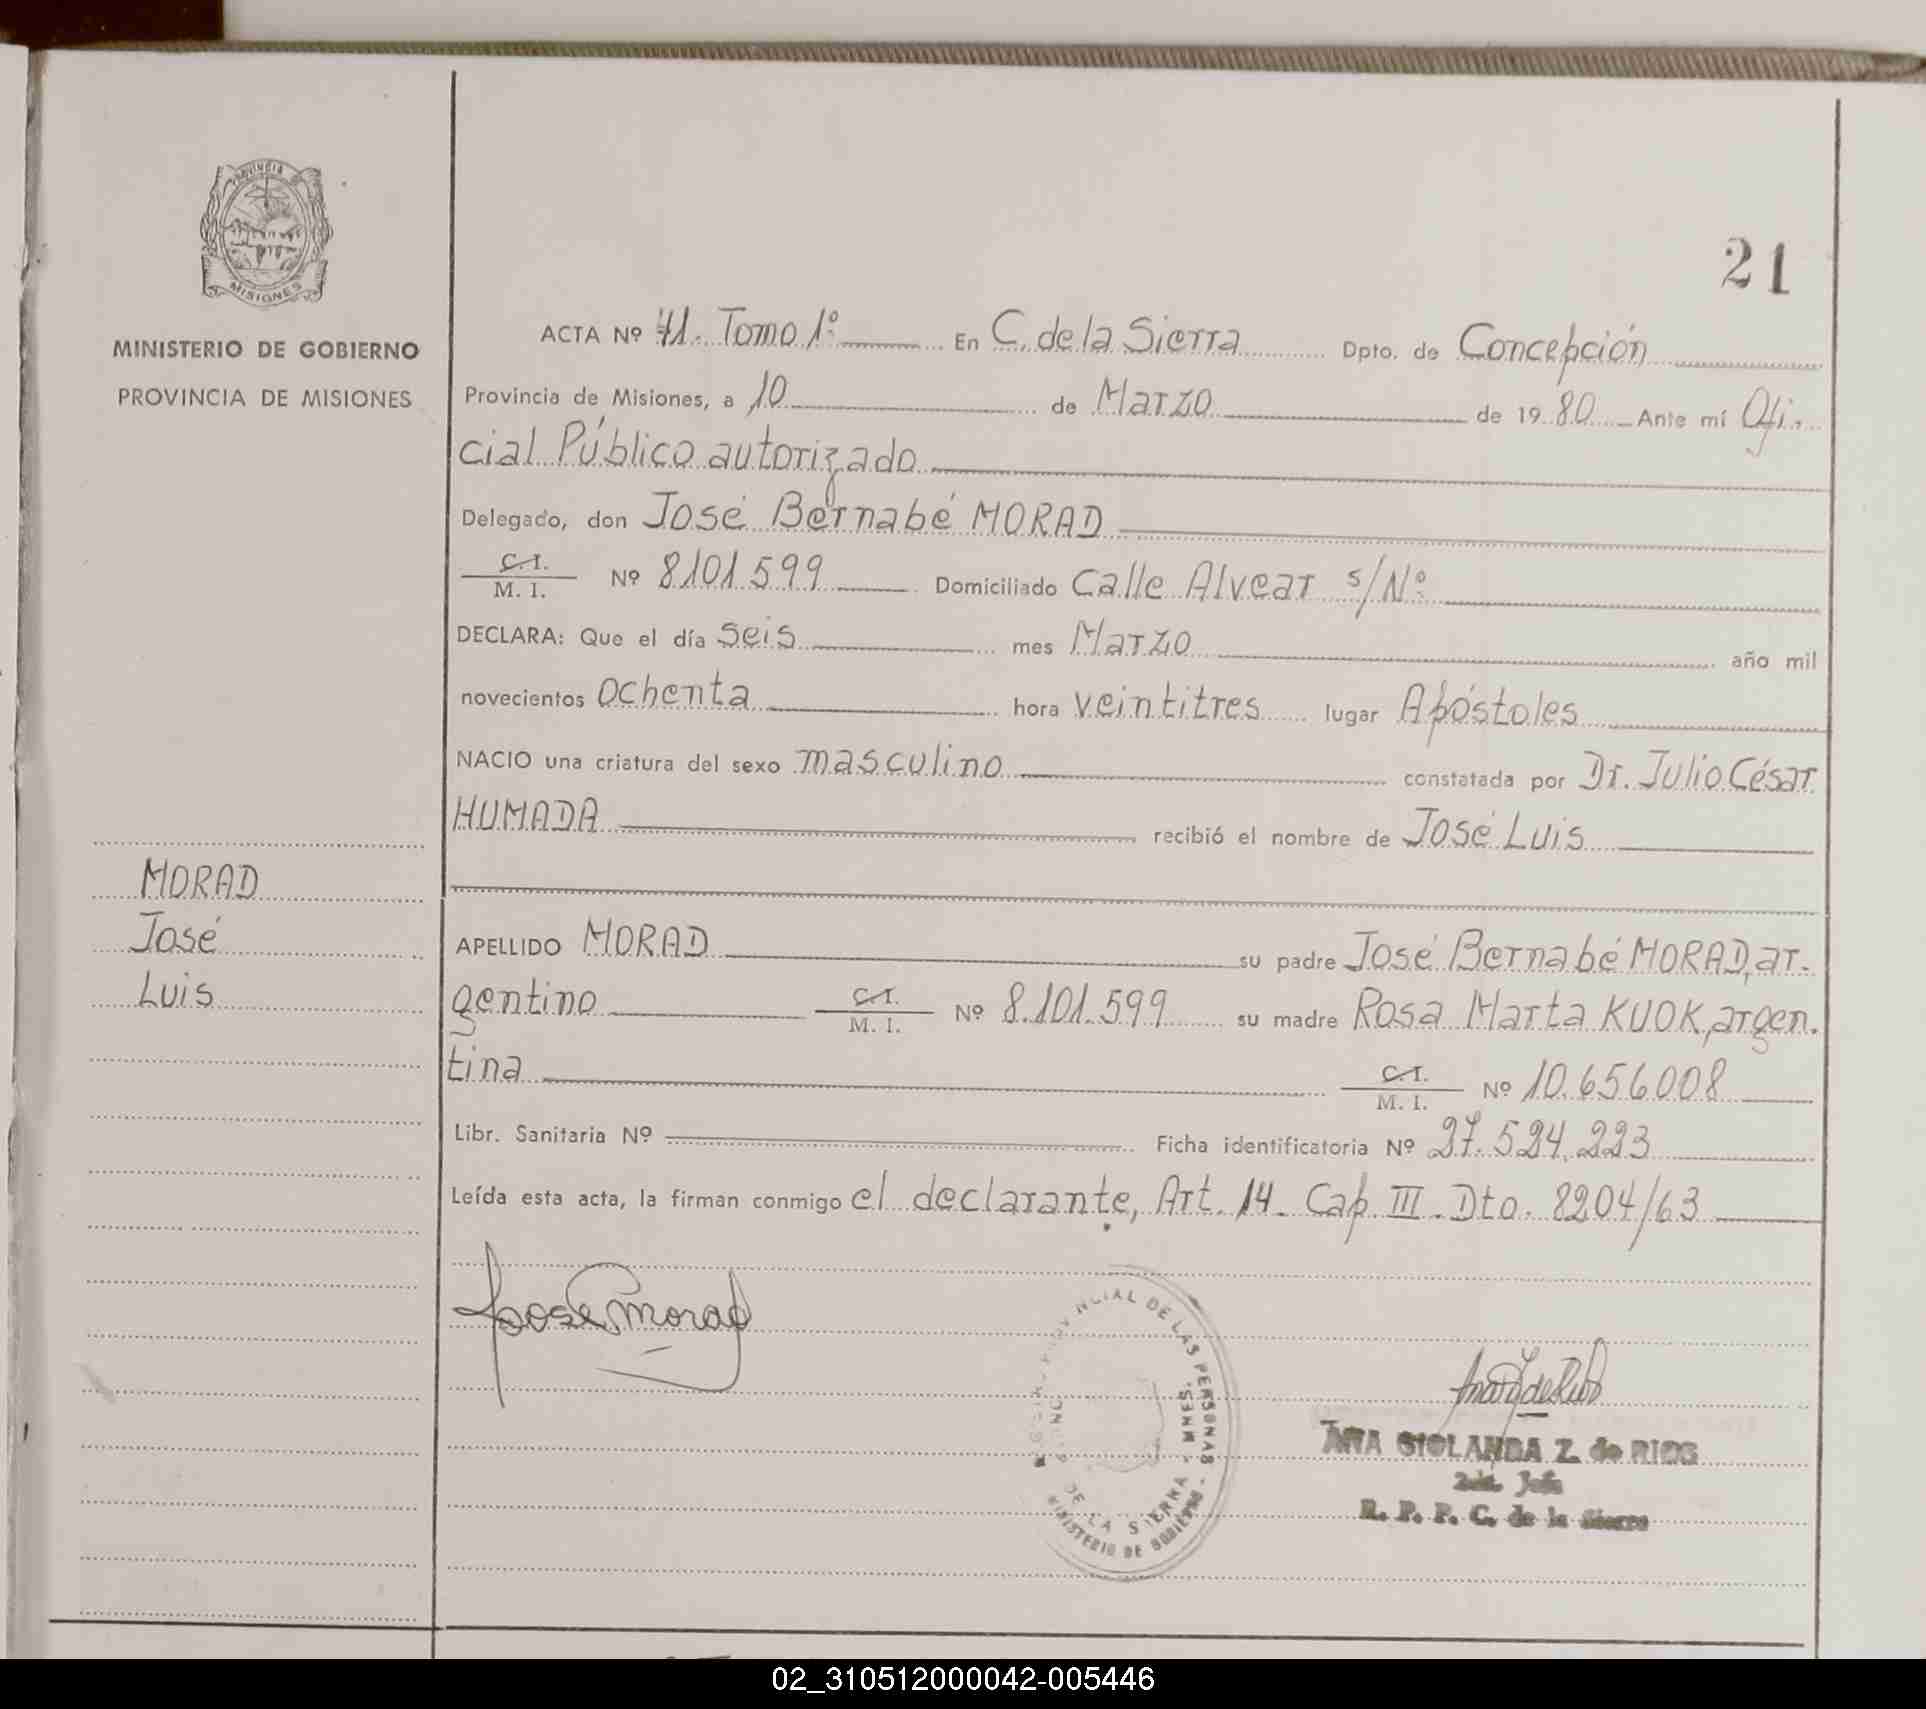 PROVINCIA DE
MISIONES
MINISTERIO DE GOBIERNO
PROVINCIA DE MISIONES
21
ACTA Nº 41. Tomo 1º En C. de la Sierra Dpto. de Concepción
Provincia de Misiones, a 10 de Marzo de 1980 Ante mí Ofi.
cial Público autorizado
Delegado, don José Bernabé MORAD
C.I. / M. I. Nº 8101.599 Domiciliado Calle Alvear s/Nº
DECLARA: Que el día seis mes Marzo año mil
novecientos ochenta hora veintitres lugar Apóstoles
NACIO una criatura del sexo masculino constatada por Dr. Julio César
HUMADA recibió el nombre de José Luis
MORAD
José
Luis
APELLIDO MORAD su padre José Bernabé MORAD, ar.
gentino C.I. / M. I. Nº 8.101.599 su madre Rosa Marta KUOK, argen.
tina C.I. / M. I. Nº 10.656008
Libr. Sanitaria Nº Ficha identificatoria Nº 27.524.223
Leída esta acta, la firman conmigo el declarante, Art. 14. Cap. III. Dto. 8204/63
José Morad
PROVINCIAL DE LAS PERSONAS
DE LA SIERRA - MNES.
MINISTERIO DE GOBIERNO
ANA GIOLANDA Z. de RIOS
R. P. P. C. de la Sierra
02_310512000042-005446